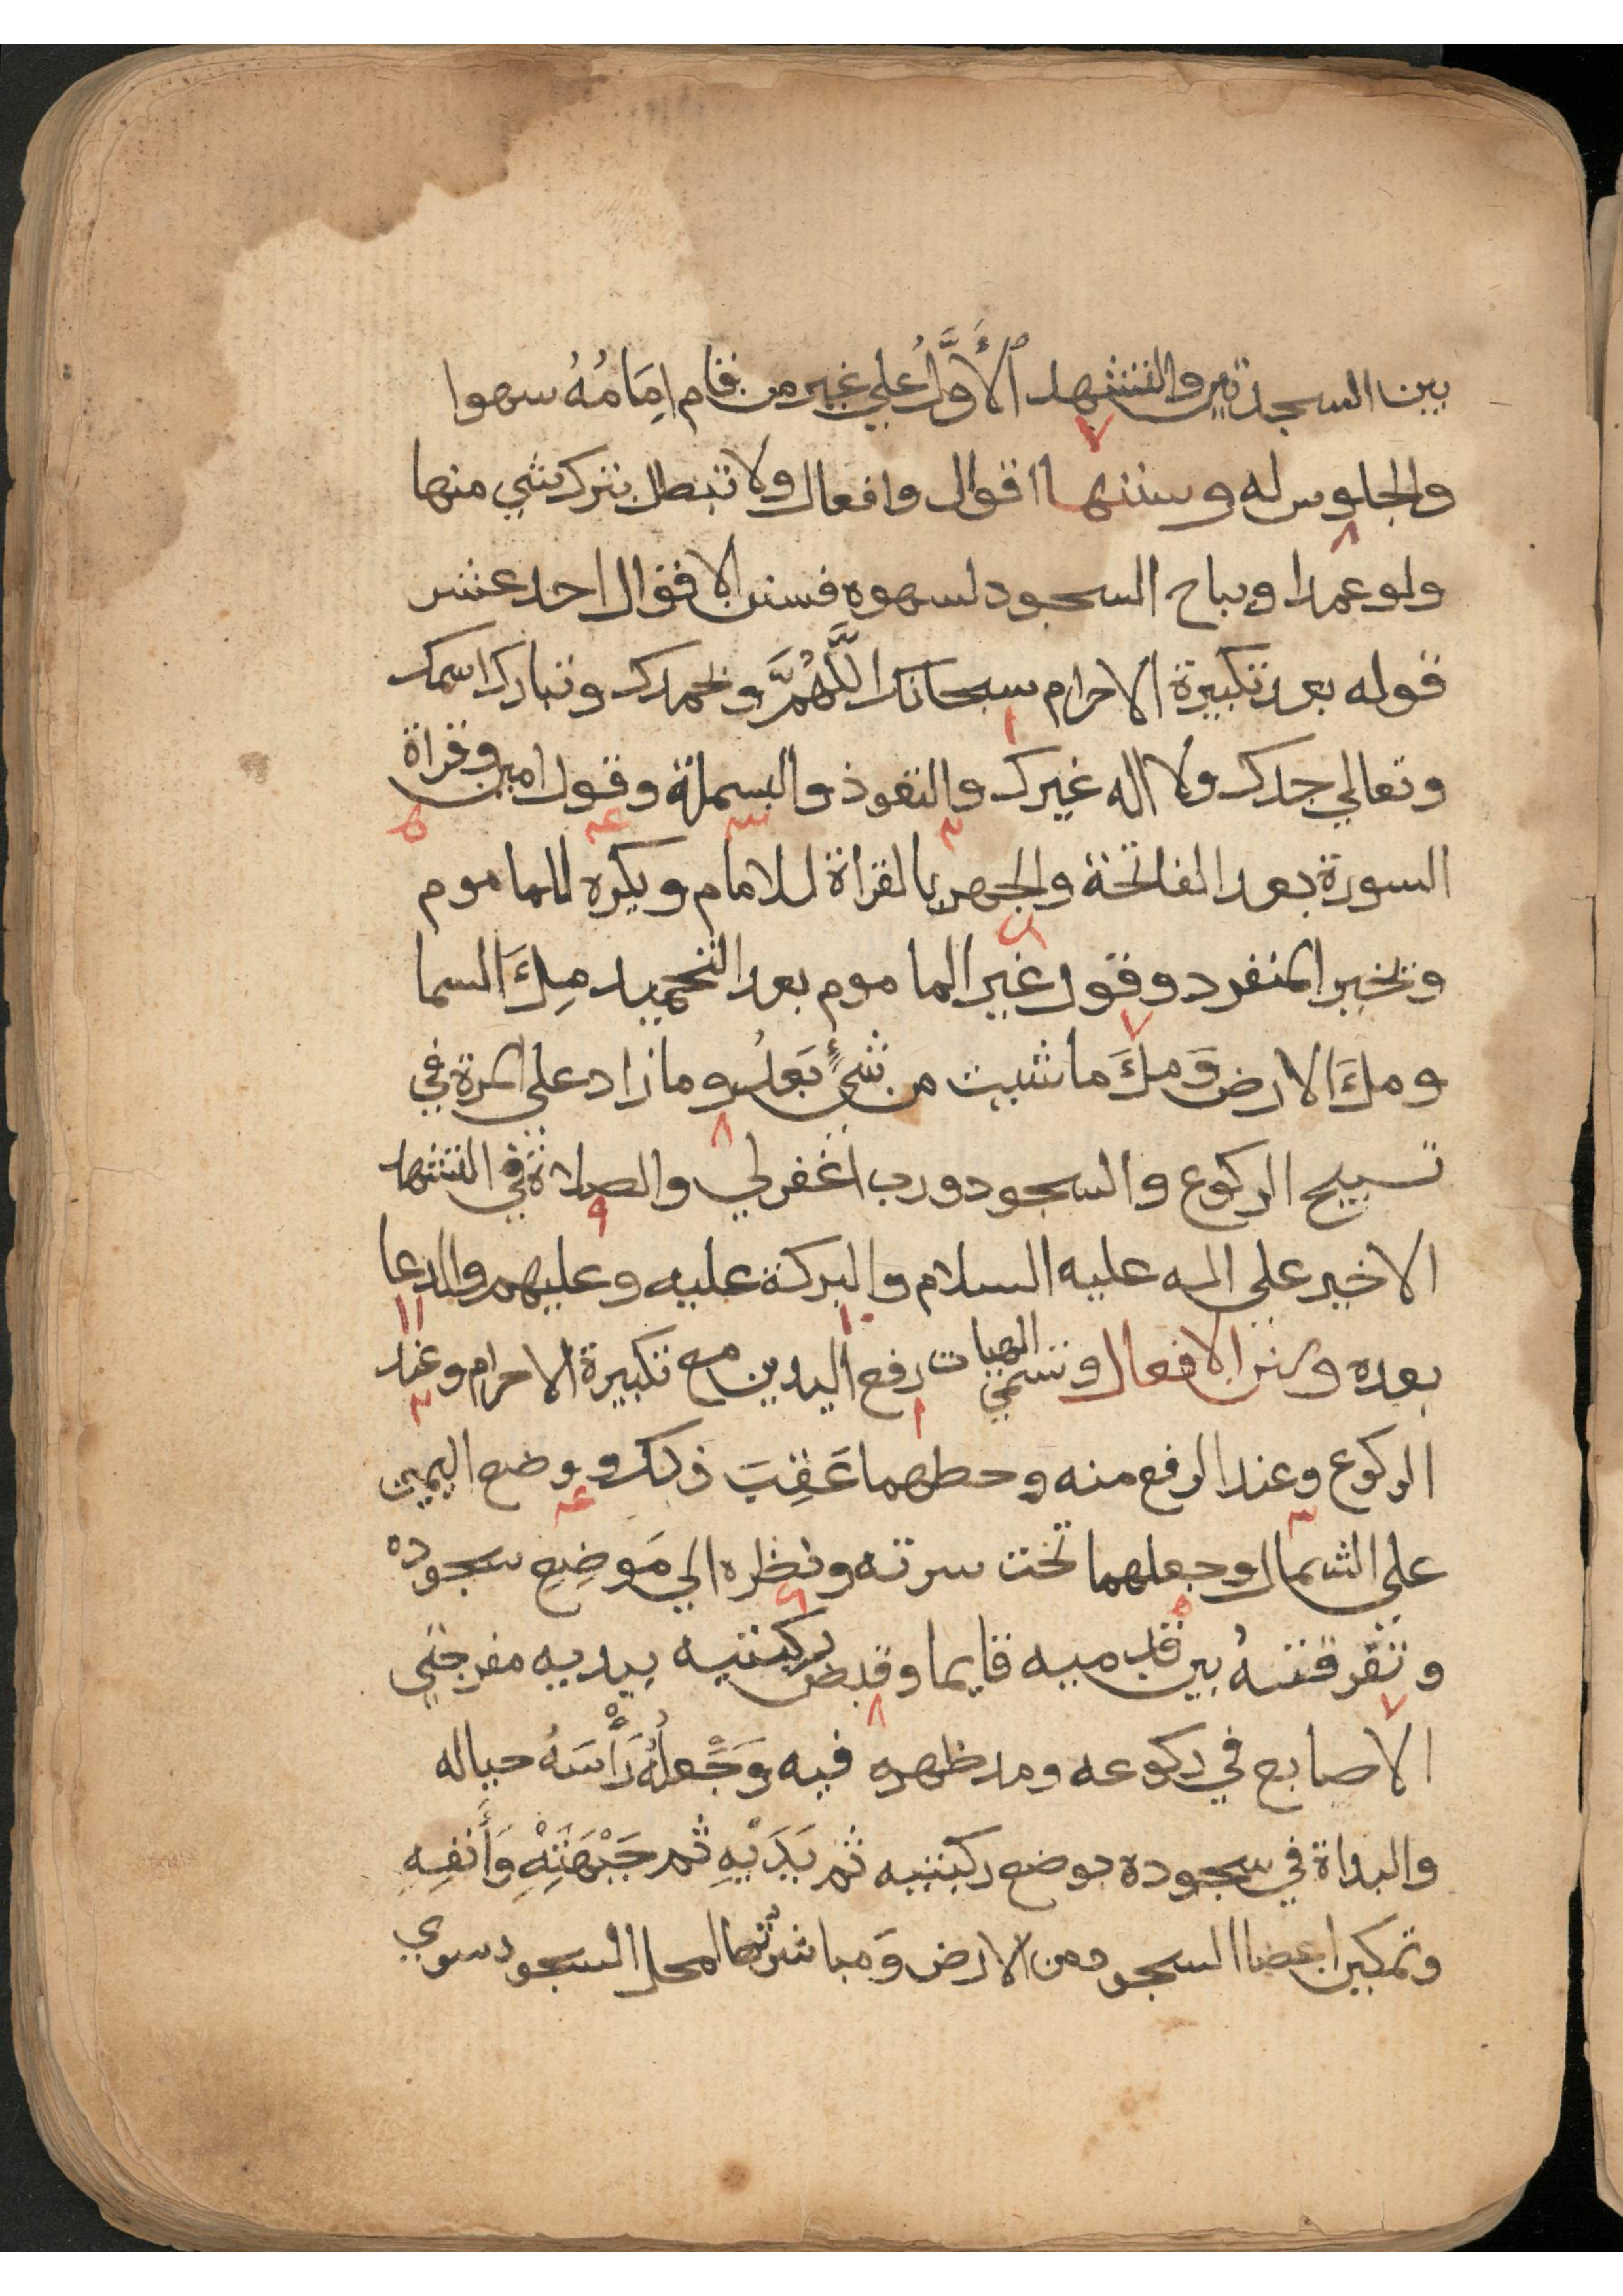 بين السجدتين والتشهد الأَوَّلُ علي غير من قام اِمَامُهُ سهوا
٧
والجلوس له وسننها اقوال وافعال ولا تبطل بترك شي منها
٨
ولو عمدا ويباح السجود لسهوه فسنن الاقوال احد عشر
قوله بعد تكبيرة الاحرام سبحانك اللَّهُمَّ وبحمدك وتبارك اسمك
١
وتعالي جدك ولا اله غيرك والتعوذ والبسملة وقول امين وقراة
٢ ٣ ٤ ٥
السورة بعد الفاتحة والجهر بالقراة للامام ويكره للماموم
٦
ويخير المنفرد وقول غير الماموم بعد التحميد مِلَٔ السما
٧
وملَٔ الارض وَملَٔ ما شيت من شئٍ بَعدُ وما زاد علي المرة في
٨
تسبيح الركوع والسجود ورب اغفر لي والصلاة في التشهد
٩
الاخير علي اله عليه السلام والبركة عليه وعليهم والدعا
١٠ ١١
بعده وسنن الافعال وتسمي الهيات رفع اليدين مع تكبيرة الاحرام وعند
١ ٢
الركوع وعند الرفع منه وحطهما عَقِبَ ذلك ووضع اليمين
٣ ٤
علي الشمال وجعلهما تحت سرته ونظره الي مَوضِعِ سجوده
٥ ٦
وتفرقتهُ بين قدميه قايما وقبض ركبتيه بيديه مفرجتي
٧ ٨
الاصابع في ركوعه ومد ظهره فيه وَجَعلُهُ رَأْسَهُ حياله
والبداة في سجوده بوضع ركبتيه ثم يَدَيْهِ ثم جَبْهَتِهِ وَأَنفِهِ
وتمكين اعضا السجود من الارض وَمباشرتُها لمحل السجود سوي